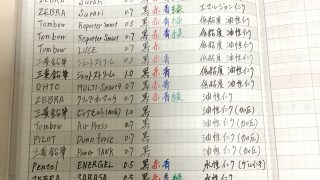 ZEBRA Surari 0.7 黒 赤 青 緑 エマルジョンインク
Tombow Reporter Smart 0.5 黒 赤 青 緑 低粘度 油性インク
Tombow Reporter Smart 0.7 黒 赤 青 緑 低粘度 油性インク
Tombow LUCE 0.7 黒 赤 低粘度 油性インク
三菱鉛筆 ジェットストリーム 0.7 黒 赤 青 低粘度 油性インク
三菱鉛筆 ジェットストリーム 1.0 黒 赤 青 低粘度 油性インク
OHTO MULTI Smart4 0.7 黒 赤 青 低粘度 油性インク
ZEBRA 0.7 黒 赤 青 緑 油性インク
三菱鉛筆 0.7 黒 赤 油性インク (加圧)
Tombow Air Press 0.7 黒 油性インク (加圧)
PILOT Down force 0.7 黒 油性インク (加圧)
三菱鉛筆 Power TANK 0.7 黒 油性インク (加圧)
Pentel ENERGEL 0.5 黒 赤 青 水性インク
ZEBRA SARASA 0.5